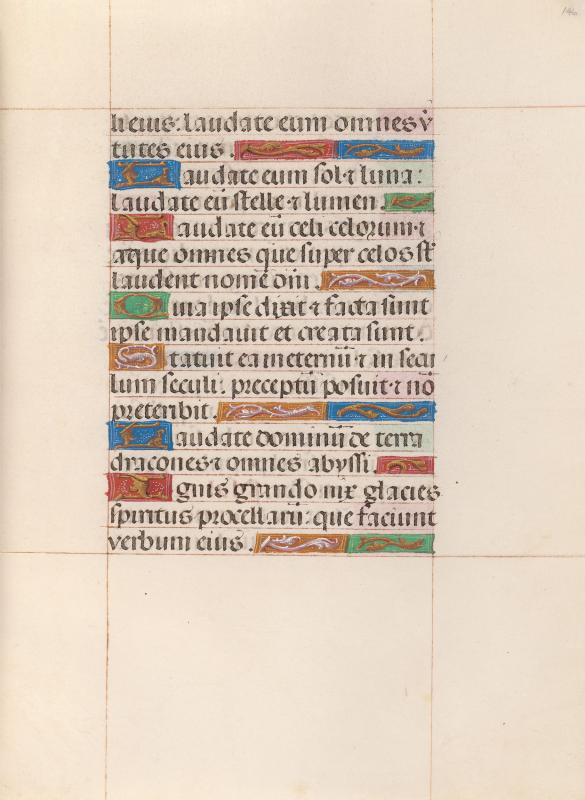 146
li eius: laudate eum omnes v̾
tutes eius.
Laudate eum sol ⁊ luna:
laudate eū stelle ⁊ lumen.
Laudate eū celi celorum: ⁊
aque omnes que super celos st̄
laudent nomē dn̄i.
Quia ipse dixit ⁊ facta sunt
ipse mandauit et creata sunt.
Statuit ea in eternū ⁊ in secu
lum seculi: preceptū posuit ⁊ nō
preteribit.
Laudate dominū de terra
dracones ⁊ omnes abyssi.
Ignis grando nix glacies
spiritus procellarū: que faciunt
verbum eius.